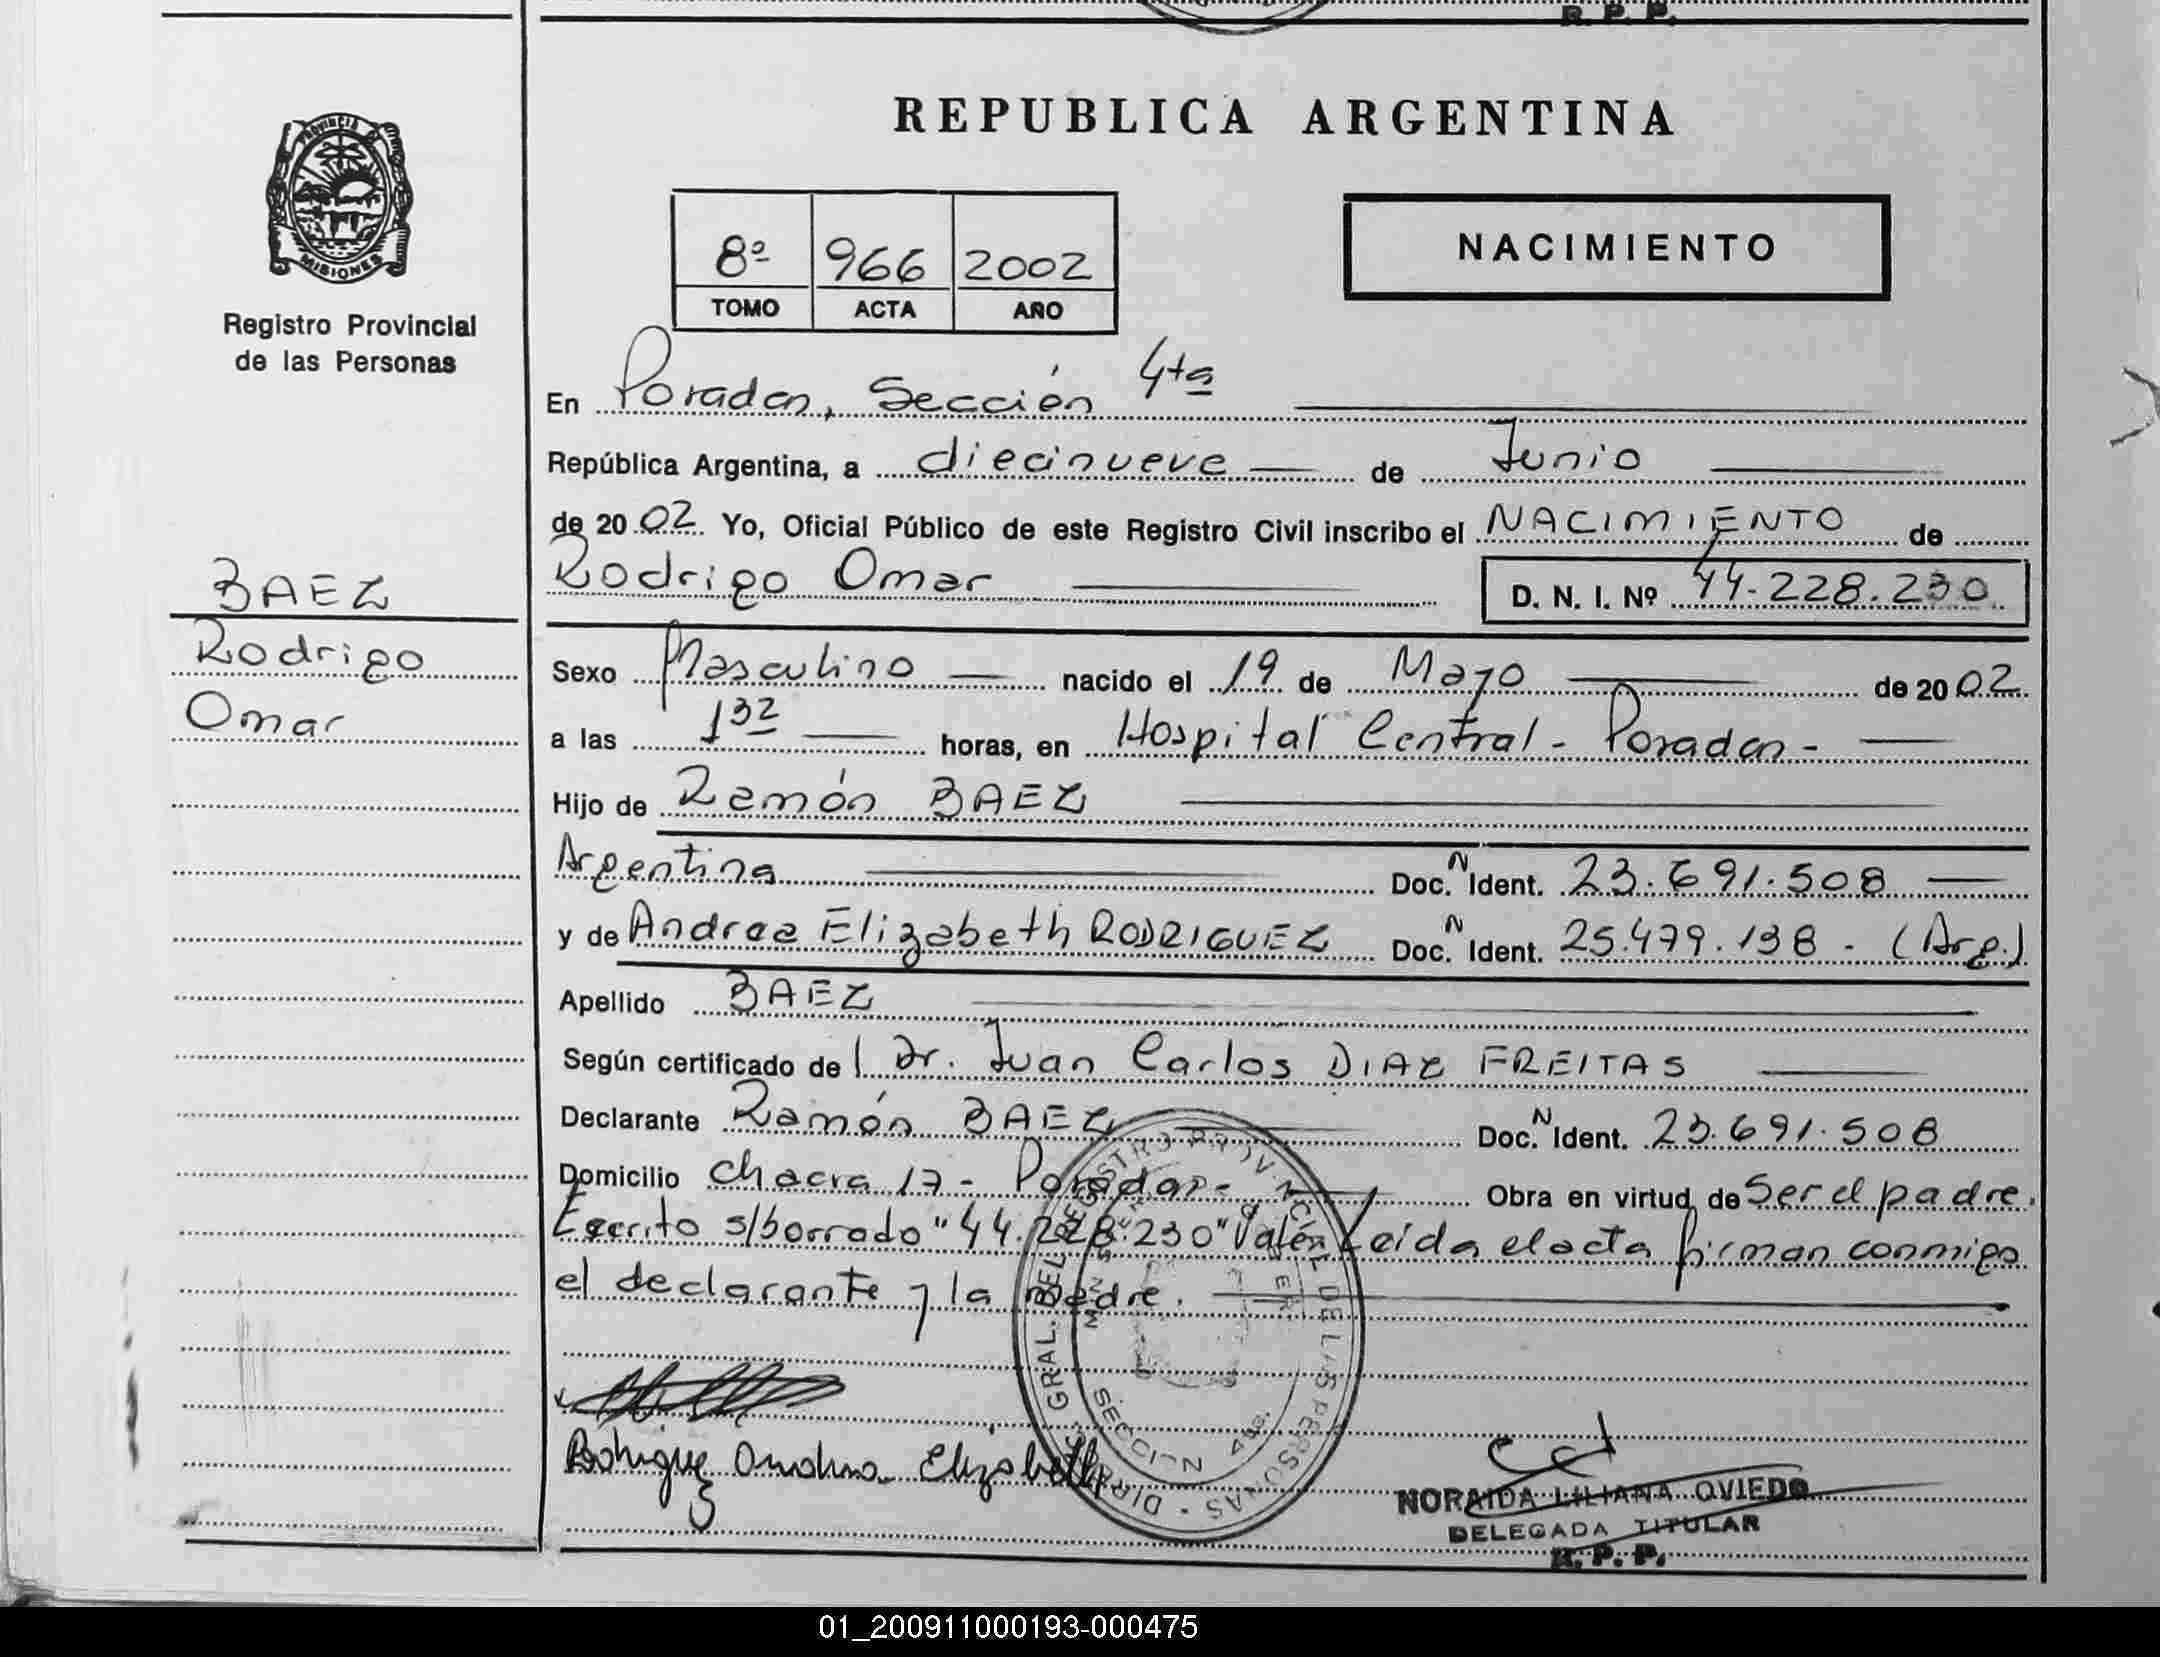 R. P. P.
REPUBLICA ARGENTINA
PROVINCIA
MISIONES
Registro Provincial
de las Personas
8º 966 2002
TOMO ACTA AÑO
NACIMIENTO
En Posadas, Sección 4ta
República Argentina, a diecinueve de Junio
de 2002 Yo, Oficial Público de este Registro Civil inscribo el NACIMIENTO de
Rodrigo Omar D. N. I. Nº 44.228.230
BAEZ
Rodrigo
Omar
Sexo Masculino nacido el 19 de Mayo de 2002
a las 1 32 horas, en Hospital Central - Posadas -
Hijo de Ramón BAEZ
Argentina Doc. N Ident. 23.691.508
y de Andrea Elizabeth RODRIGUEZ Doc. N Ident. 25.479.138 - (Arg.)
Apellido BAEZ
Según certificado de l Dr. Juan Carlos DIAZ FREITAS
Declarante Ramón BAEZ Doc. N Ident. 23.691.508
Domicilio Chacra 17 - Posadas - Obra en virtud de Ser el padre.
Escrito s/borrado "44.228.230" Vale. Leída el acta firman conmigo
el declarante y la madre.
Rodriguez Andrea Elizabeth
NORAIDA LILIANA OVIEDO
DELEGADA TITULAR
R. P. P.
01_200911000193-000475